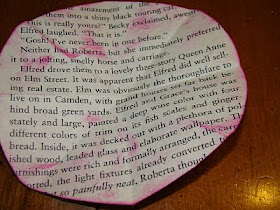 amazement of the
them into a shiny black touring car.
"This is really yours?" Becky exclaimed, awest
Elfred laughed. "That it is."
"Gosh, I've never been in one before."
Neither had Roberta, but she immediately preferred
it to a jolting, smelly horse and carriage.
Elfred drove them to a lovely three-story Queen Anne
on Elm Street. It was apparent that Elfred did well sell-
ing real estate. Elm was obviously the thoroughfare to
live on in Camden, with grand houses set far back be-
hind broad green yards. Elfred and Grace's house was
stately and large, painted a deep wine color with four
different colors of trim on its fish scales and ginger-
bread. Inside, it was decked out with a plethora of pol-
ished wood, leaded glass and elaborate wallpaper. The
furnishings were rich and formally arranged, the car
ored, the light fixtures already converted to
so painfully neat, Roberta thou